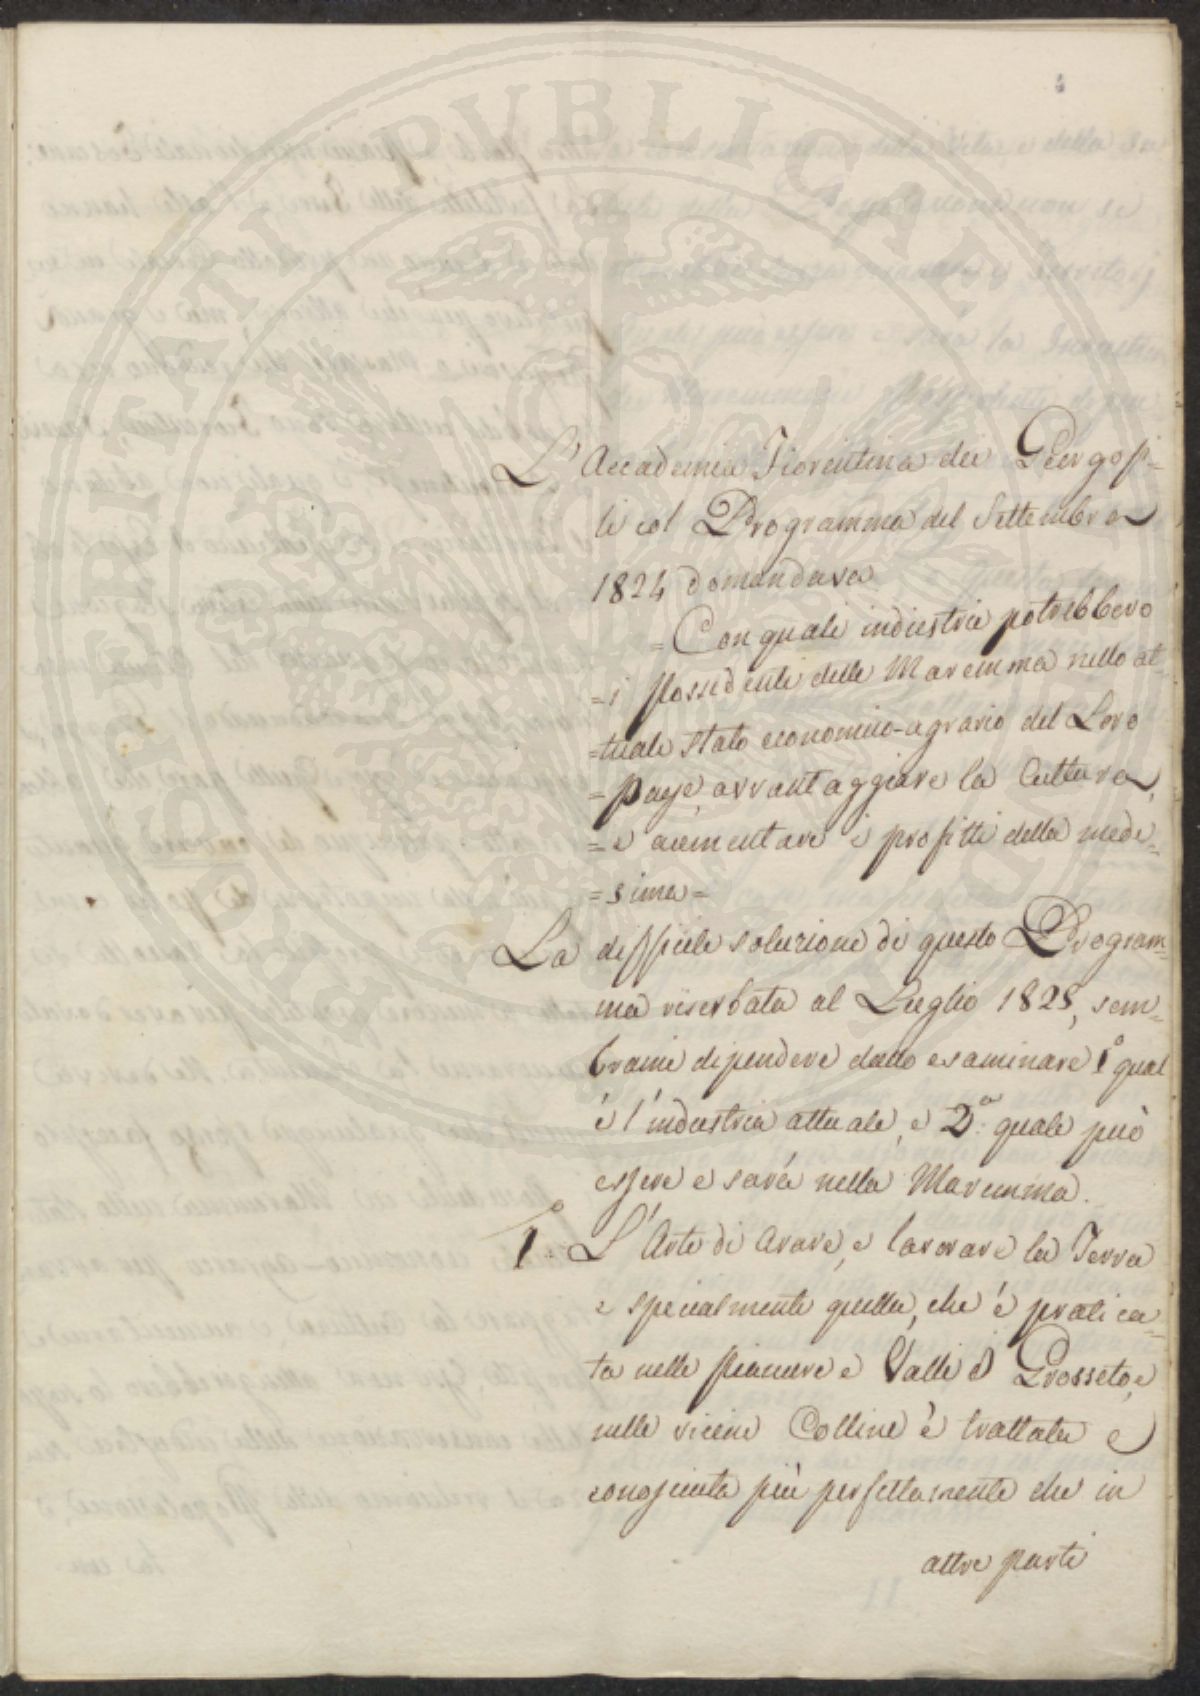 PROSPERITATI PUBLICAE
L' Accademia Fiorentina dei Georgofi=
li col Programma del Settembre
1824 domandava
= Con quali industrie potrebbero
= i Possidenti delle Maremma nello at=
=tuale stato economico-agrario del Loro
= Paese avvantaggiare la Cultura,
= e aumentare i profitti della mede=
=sima=
La difficile soluzione di questo Program=
ma riserbata al Luglio 1825, sem=
brami dipendere dallo esaminare 1° qual
è l'industria attuale, e 2.° quale può
essere e sarà nella Maremma.
1.° L' Arte di arare, e lavorare la Terra
e specialmente quella, che è pratica=
ta nelle pianure e Valli di Grosseto, e
nelle vicine Colline è trattata e
conosciuta più perfettamente che in
altre parti